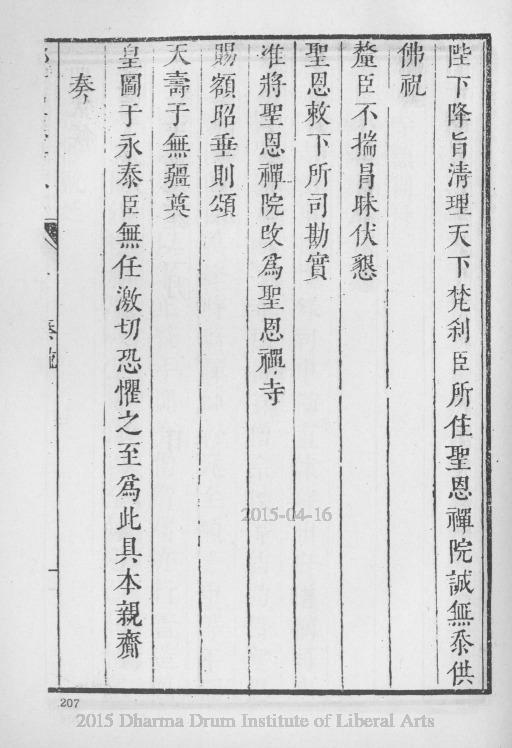 陛下降旨清理天下梵刹臣所住聖恩禪院誠無忝供
佛祝
釐臣不揣冐昧伏懇
聖恩敕下所司勘實
准將聖恩禪院改爲聖恩禪寺
賜額昭垂則頌
天壽于無疆奠
皇圖于永泰臣無任激切恐懼之至爲此具本親齎
奏
207
2015-04-16
2015 Dharma Drum Institute of Liberal Arts